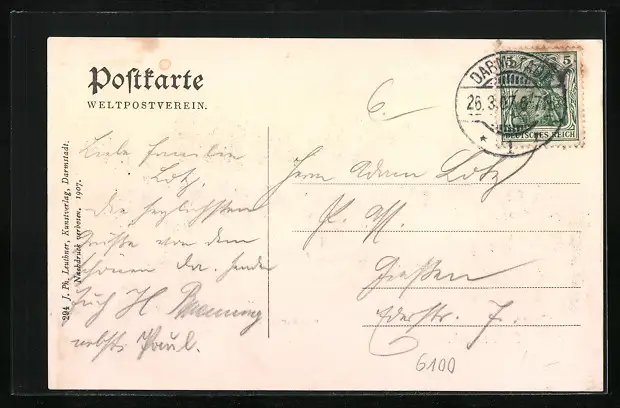 Postkarte
WELTPOSTVEREIN.
294 J. Ph. Leuthner, Kunstverlag, Darmstadt.
Nachdruck verboten. 1907.
DARMSTADT
26.3.07.6-7N.
5
DEUTSCHES REICH
6.
Liebe Familie
Lotz,
die herzlichsten
Grüße von dem
schönen Da. sendet
Euch H.
nebst Paul.
Herrn Adam Lotz
Gießen
Ederstr. 7.
6100